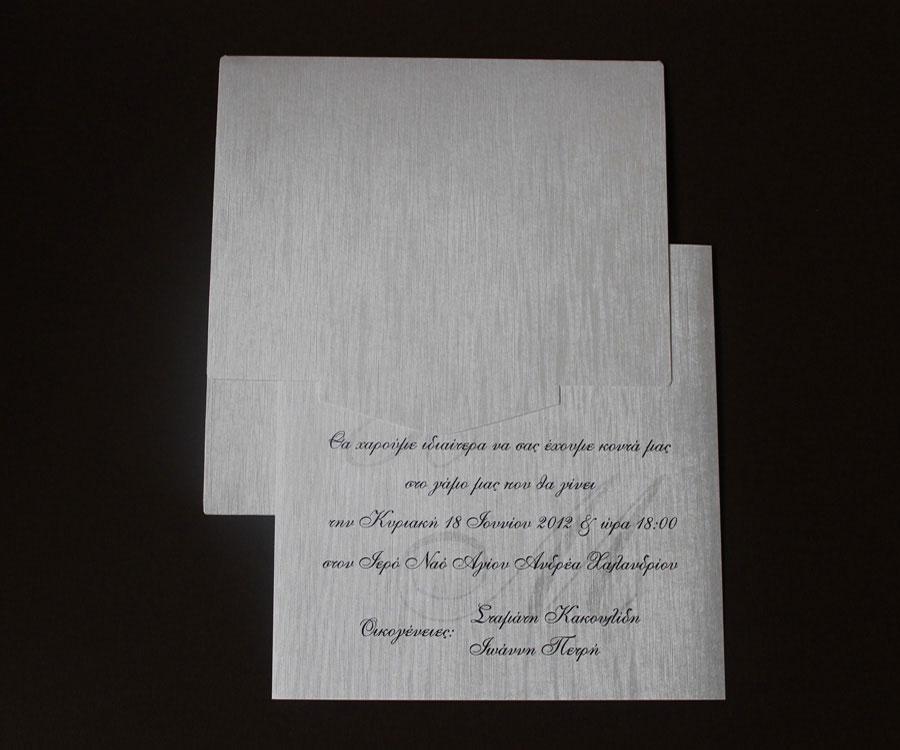 Θα χαρούμε ιδιαίτερα να σας έχουμε κοντά μας
στο γάμο μας που θα γίνει
την Κυριακή 18 Ιουνίου 2012 & ώρα 18:00
στον Ιερό Ναό Αγίου Ανδρέα Χαλανδρίου
Οικογένειες:
Σταμάτη Κακουλίδη
Ιωάννη Πετρή